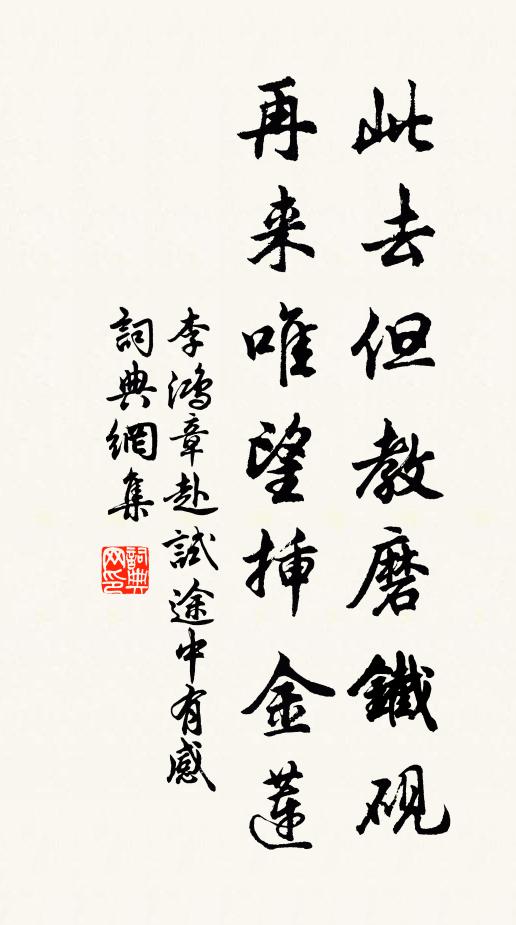 此去但教磨鐵硯
再来唯望插金蓮
李鴻章赴試途中有感
詞典網集
詞典网印